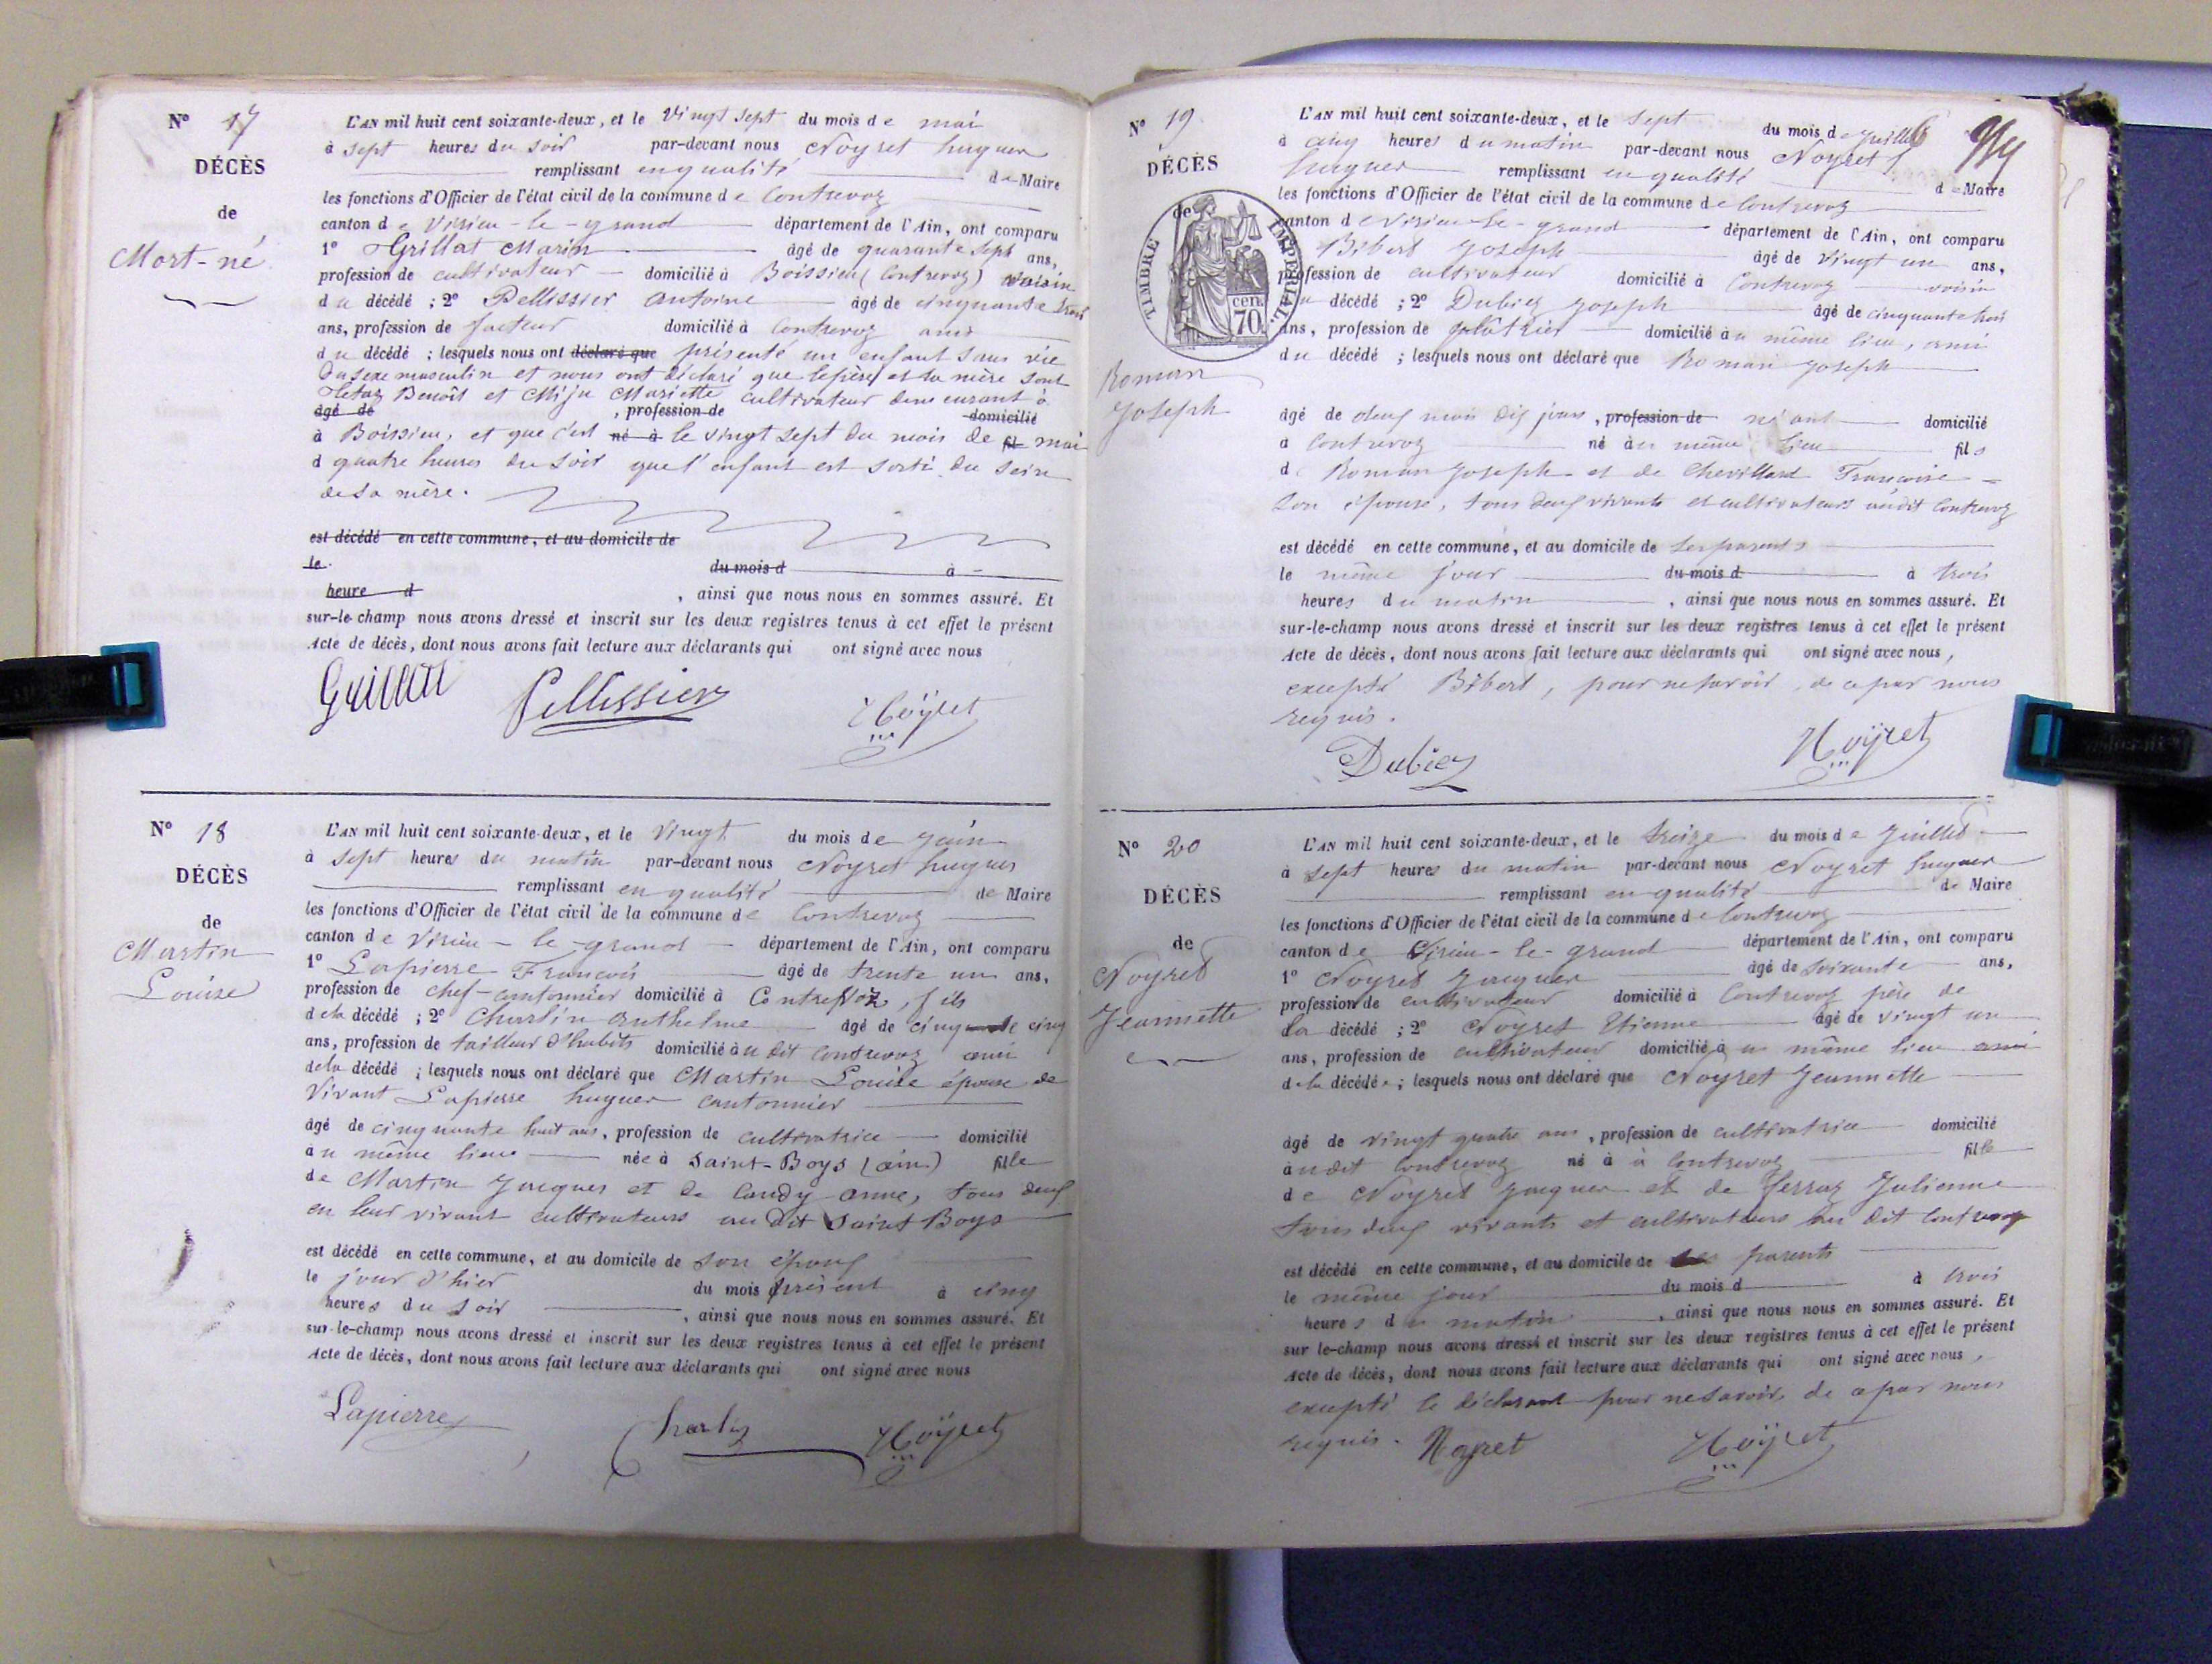 N° 17
DÉCÈS
de
Mort-né
L'AN mil huit cent soixante-deux, et le vingt sept du mois de mai
à sept heures du soir par-devant nous Noyret hugues
remplissant en qualité de Maire
les fonctions d'Officier de l'état civil de la commune de Contrevoz
canton de Virieu-le-grand département de l'Ain, ont comparu
1° Grillat Marin âgé de quarante sept ans,
profession de cultivateur domicilié à Boissieu (Contrevoz) voisin
du décédé ; 2° Pellissier Antoine âgé de cinquante trois
ans, profession de facteur domicilié à Contrevoz ami
du décédé ; lesquels nous ont déclaré que présenté un enfant sans vie
du sexe masculin et nous ont déclaré que le père et la mère sont
Benoît et Mariette cultivateur demeurant à
âgé de , profession de domicilié
à Boissieu, et que c'est né à le vingt sept du mois de fil mai
à quatre heures du soir que l'enfant est sorti du sein
de sa mère.
est décédé en cette commune, et au domicile de
le du mois d à
heure d , ainsi que nous nous en sommes assuré. Et
sur-le-champ nous avons dressé et inscrit sur les deux registres tenus à cet effet le présent
Acte de décès, dont nous avons fait lecture aux déclarants qui ont signé avec nous
Grillat Pellissier Noÿret
N° 18
DÉCÈS
de
Martin
Louise
L'AN mil huit cent soixante-deux, et le vingt du mois de juin
à sept heures du matin par-devant nous Noyret hugues
remplissant en qualité de Maire
les fonctions d'Officier de l'état civil de la commune de Contrevoz
canton de Virieu-le-grand département de l'Ain, ont comparu
1° Lapierre François âgé de trente un ans,
profession de chef-cantonnier domicilié à Contrevoz, fils
de la décédé ; 2° Charlin Anthelme âgé de cinquante cinq
ans, profession de tailleur d'habits domicilié au dit Contrevoz ami
de la décédé ; lesquels nous ont déclaré que Martin Louise épouse de
vivant Lapierre hugues cantonnier
âgé de cinquante huit ans, profession de cultivatrice domicilié
au même lieu née à Saint-Boys (ain) fille
de Martin Jacques et de Candy anne, tous deux
en leur vivant cultivateurs au dit Saint Boys
est décédé en cette commune, et au domicile de son époux
le jour d'hier du mois présent à cinq
heures du soir , ainsi que nous nous en sommes assuré. Et
sur-le-champ nous avons dressé et inscrit sur les deux registres tenus à cet effet le présent
Acte de décès, dont nous avons fait lecture aux déclarants qui ont signé avec nous
Lapierre Charlin Noÿret
N° 19
DÉCÈS
de
TIMBRE IMPÉRIAL.
cen. 70.
Roman
Joseph
L'AN mil huit cent soixante-deux, et le sept du mois de juillet
à cinq heures du matin par-devant nous Noyret
hugues remplissant en qualité de Maire
les fonctions d'Officier de l'état civil de la commune de Contrevoz
canton de Virieu-le-grand département de l'Ain, ont comparu
Bibert Joseph âgé de vingt un ans,
profession de cultivateur domicilié à Contrevoz voisin
du décédé ; 2° Dubiez Joseph âgé de cinquante trois
ans, profession de plâtrier domicilié au même lieu, ami
du décédé ; lesquels nous ont déclaré que Roman Joseph
âgé de deux mois dix jours, profession de néant domicilié
à Contrevoz né au même lieu fils
de Roman Joseph et de Chevillard Françoise
son épouse, tous deux vivants et cultivateurs au dit Contrevoz
est décédé en cette commune, et au domicile de ses parents
le même jour du mois d à trois
heures du matin , ainsi que nous nous en sommes assuré. Et
sur-le-champ nous avons dressé et inscrit sur les deux registres tenus à cet effet le présent
Acte de décès, dont nous avons fait lecture aux déclarants qui ont signé avec nous,
excepté Bibert, pour ne savoir, de ce par nous
requis.
Dubiez Noÿret
N° 20
DÉCÈS
de
Noyret
Jeannette
L'AN mil huit cent soixante-deux, et le treize du mois de juillet
à sept heures du matin par-devant nous Noyret hugues
remplissant en qualité de Maire
les fonctions d'Officier de l'état civil de la commune de Contrevoz
canton de Virieu-le-grand département de l'Ain, ont comparu
1° Noyret Jacques âgé de soixante ans,
profession de cultivateur domicilié à Contrevoz père de
la décédé ; 2° Noyret Etienne âgé de vingt un
ans, profession de cultivateur domicilié au même lieu ami
de la décédée ; lesquels nous ont déclaré que Noyret Jeannette
âgé de vingt quatre ans, profession de cultivatrice domicilié
au dit Contrevoz né à à Contrevoz fille
de Noyret Jacques et de Ferraz Julienne
tous deux vivants et cultivateurs au dit Contrevoz
est décédé en cette commune, et au domicile de ses parents
le même jour du mois d à trois
heures du matin , ainsi que nous nous en sommes assuré. Et
sur le-champ nous avons dressé et inscrit sur les deux registres tenus à cet effet le présent
Acte de décès, dont nous avons fait lecture aux déclarants qui ont signé avec nous,
excepté le déclarant pour ne savoir, de ce par nous
requis. Noyret Noÿret